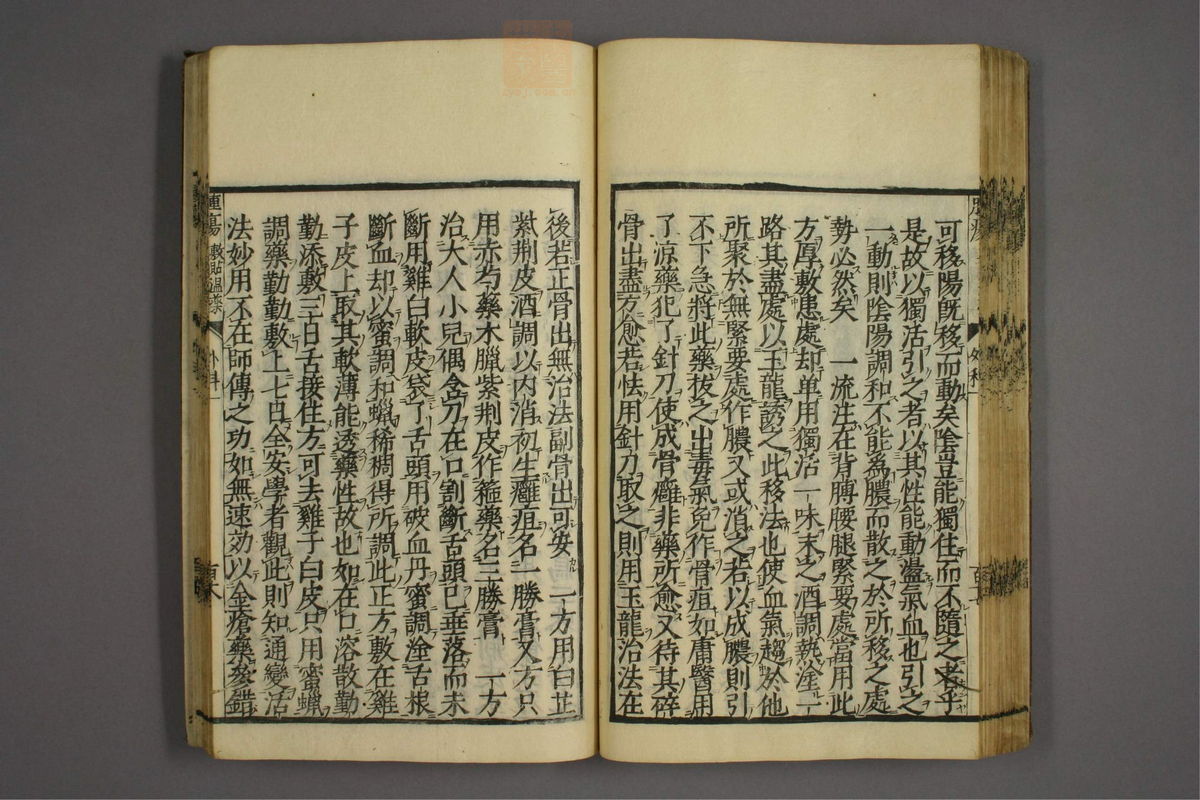 可移陽既移而動矣陰豈能獨住而不隨之者乎
是故以獨活引之者以其性能動盪氣血也引之
一動則陰陽調和不能為膿而散之於所移之處
勢必然矣　一流注在背膊腰腿緊要處當用此
方厚敷患處却单用獨活一味末之酒調熱塗一
路其盡處以玉龍誘之此移法也使血氣趨於他
所聚於無緊要處作膿又或消之若以成膿則引
不下急將此藥拔之出毒氣免作骨疽如庸醫用
了凉藥犯了針刀使成骨癰非藥所愈又待其碎
骨出盡方愈若怯用針刀取之則用玉龍治法在
後若正骨出無治法副骨出可安　一方用白芷
紫荆皮酒調以内消初生癰疽名一勝膏又方只
用赤芍藥木臘紫荆皮作箍藥名三勝膏　一方
治大人小兒偶含刀在口割斷舌頭已垂落而未
斷用雞白軟皮袋了舌頭用破血丹蜜調塗舌根
斷血却以蜜調和蠟稀稠得所調此正方敷在雞
子皮上取其軟薄能透藥性故也如在口溶散勤
勤添敷三日舌接住方可去雞子白皮只用蜜蠟
調藥勤勤敷上七日全安學者觀此則知通變活
法妙用不在師傳之功如無速効以金瘡藥參錯
腫瘍　敷貼温藥　外科一
百八